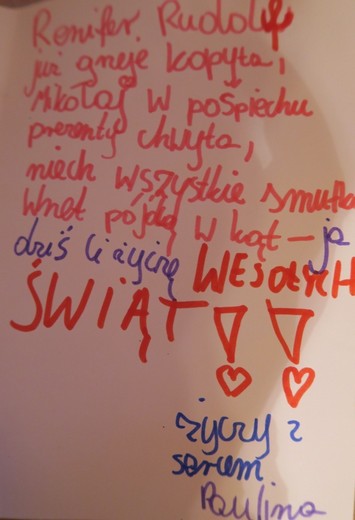 Renifer Rudolf
już grzeje kopyta,
Mikołaj w pośpiechu
prezenty chwyta,
niech wszystkie smutki
wnet pójdą w kąt - ja
dziś Ci życzę WESOŁYCH
ŚWIĄT!!
życzy z
sercem
Paulina